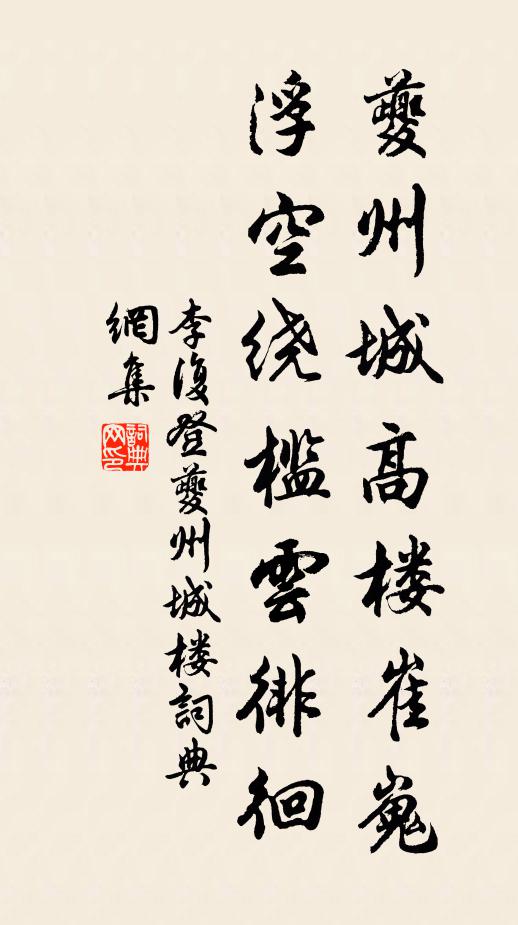 夔州城高楼崔嵬
浮空绕檻雲徘徊
李復登夔州城楼詞典
網集
詞典
网印